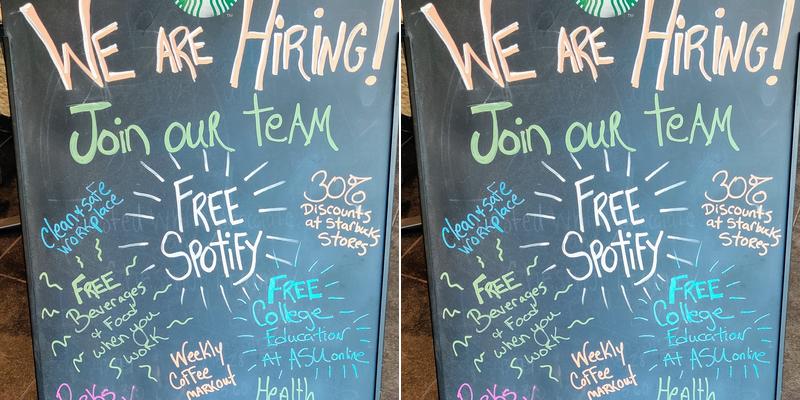 WE ARE HiRiNG!
Join our teAM
FREE
SPotiFY
Clean & safe
workplace
30%
Discounts
at Starbucks
Stores
FREE
Beverages
& Food
when you
work
FREE
College
Education
At ASU online
Weekly
CoFFee
markout
Health
WE ARE HiRiNG!
Join our teAM
FREE
SPotiFY
Clean & safe
workplace
30%
Discounts
at Starbucks
Stores
FREE
Beverages
& Food
when you
work
FREE
College
Education
At ASU online
Weekly
CoFFee
markout
Health